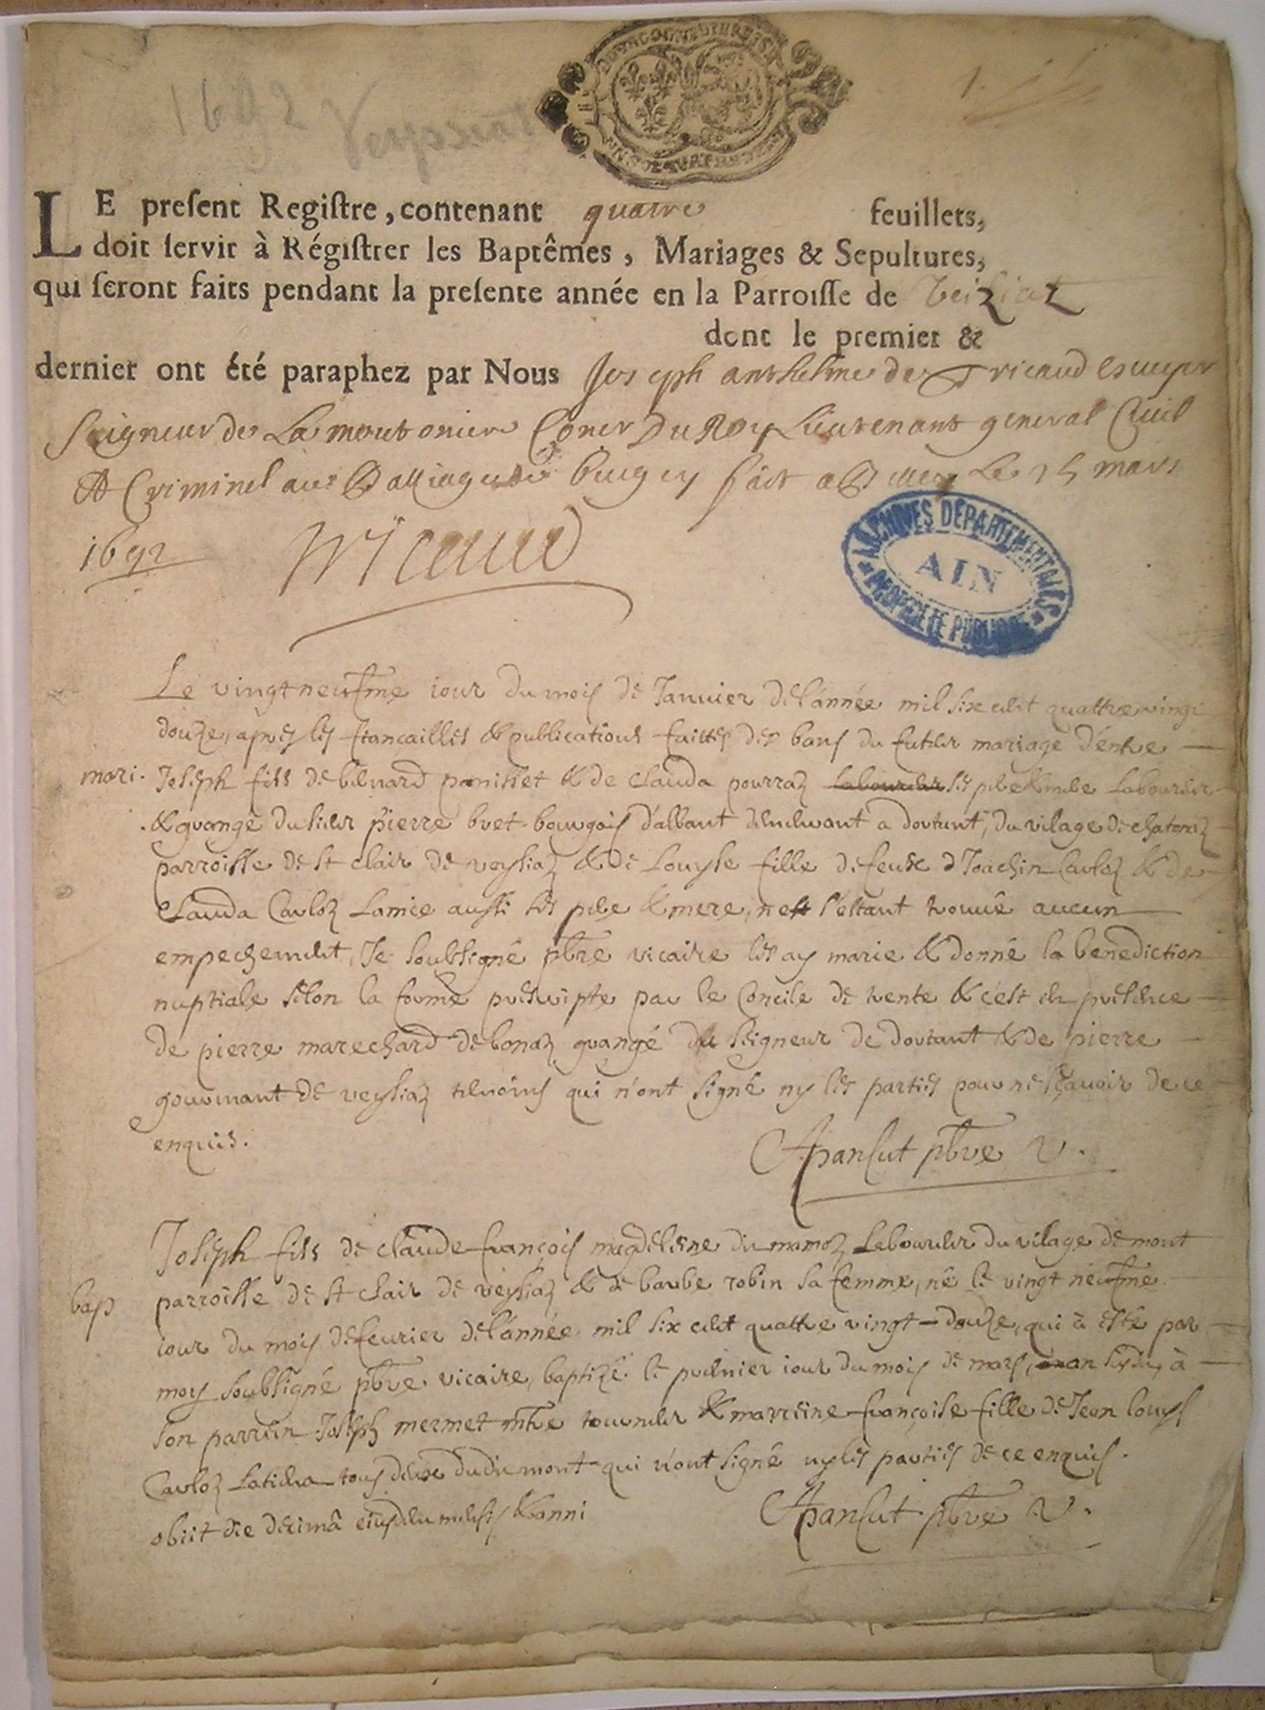 1692
1.
LE present Registre, contenant quatre feuillets,
doit servir à Régistrer les Baptêmes, Mariages & Sepultures,
qui seront faits pendant la presente année en la Parroisse de
dont le premier &
dernier ont été paraphez par Nous Joseph anthelme de Tricaud escuyer
Seigneur de La moutoniere Coner Du Roy Lieutenant general Civil
et Criminel au Balliage de bugey fait a Belley Le 15 mars
1692
Tricaud
ARCHIVES DÉPARTEMENTALES
AIN
PROPRIÉTÉ PUBLIQUE
Le vingtneufme iour du mois de Januier de l'année mil six cent quattre vingt
douze, apres les fiancailles & publications faittes des bans du futur mariage d'entre
mari. Joseph fils de benard panisset & de clauda pourraz ses pere & mere Laboureur
& grangé du sieur pierre buet bourgois d'albant demeurant a dortant, du vilage de
parroisse de st clair de veysiaz & de Louyse fille de feuz Joachin Carloz & de
Clauda Carloz aussi ses pere & mere, n'est s'estant trouué aucun
empechement, Je soubsigné pbre vicaire les ay marie & donné la benediction
nuptiale selon la forme prescripte par le Concile de trente & c'est en presence
de pierre marechard de bonaz grangé du seigneur de dortant & de pierre
gourmant de veysiaz temoins qui n'ont signé ny les parties pour ne sçauoir de ce
enquis.
Apansut pbre V.
Joseph fils de claude françois magdeleine du mamoz Laboureur du vilage de mont
bap parroisse de st clair de veysiaz & de barbe robin sa femme, né le vingt neufme
iour du mois de feurier de l'année mil six cent quattre vingt douze, qui à esté par
moy soubsigné pbre vicaire, baptizé le premier iour du mois de mars, an susdit, à
son parrein Joseph mermet mtre tourneur & marreine françoise fille de Jean louys
Carloz tous deux dudit mont qui n'ont signé ny les parties de ce enquis.
obiit die decimâ eiusdem mensis & anni
Apansut pbre V.